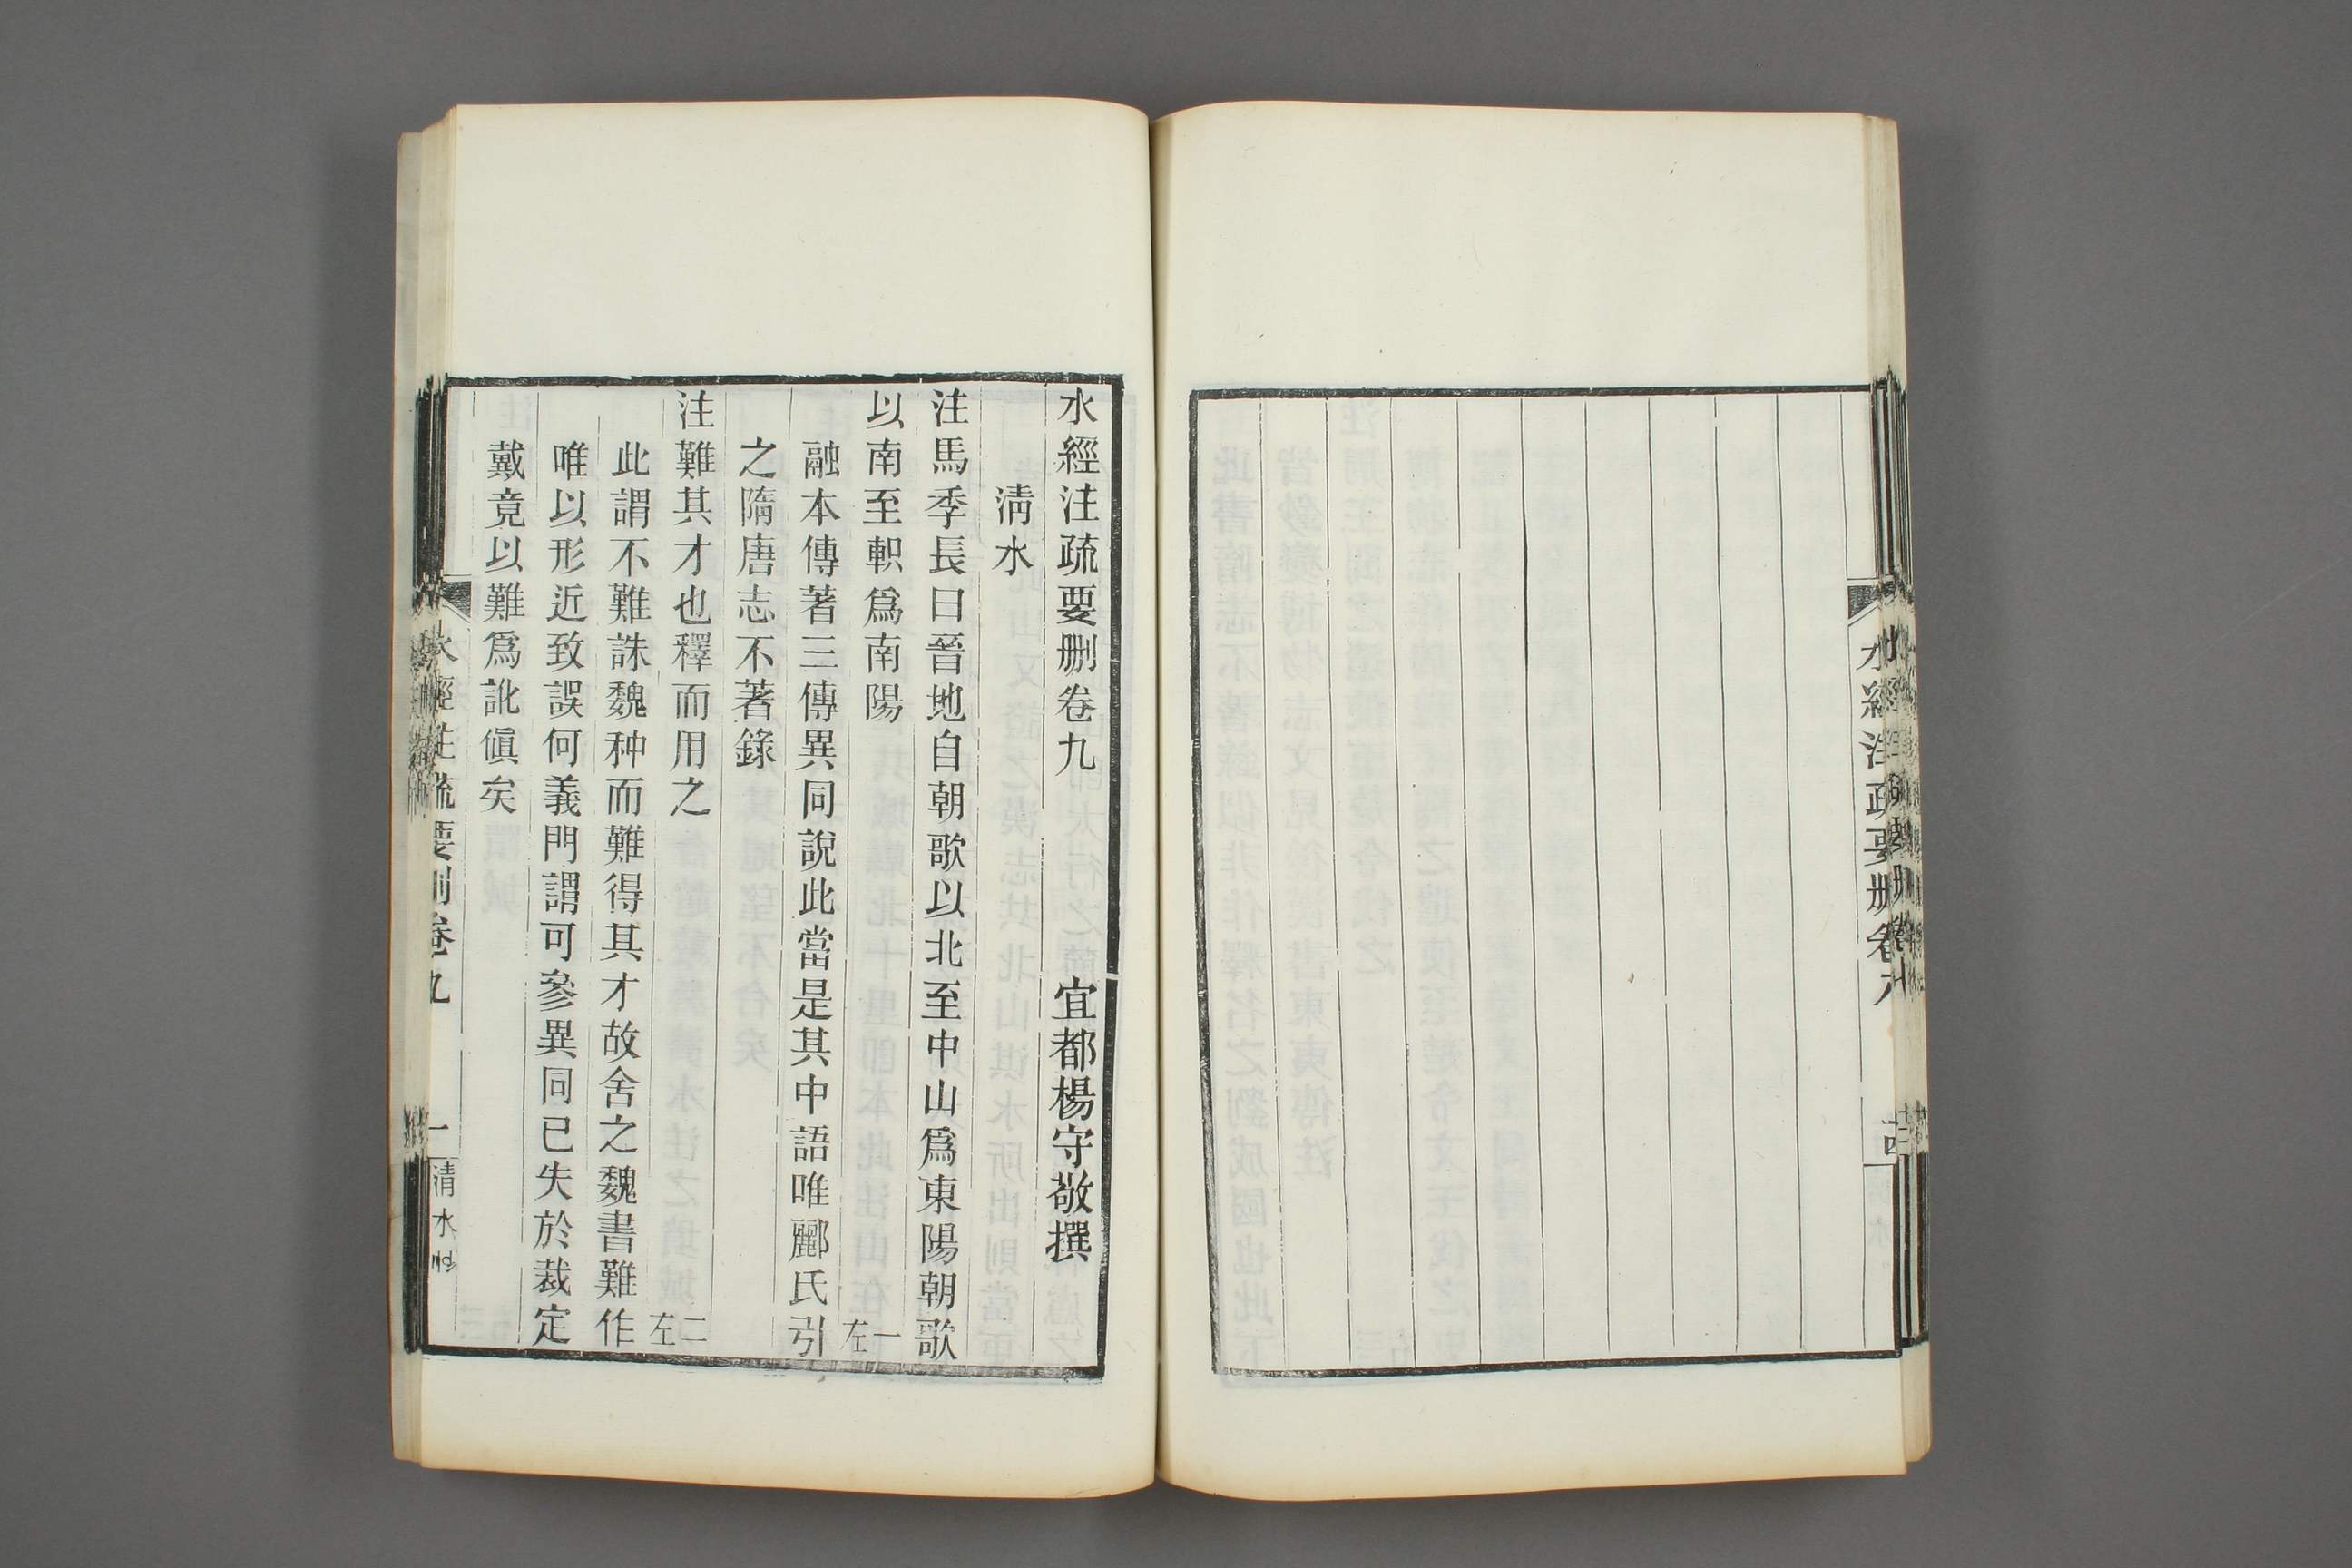 水經注疏要刪卷九　宜都楊守敬撰
清水
注馬季長曰晉地自朝歌以北至中山爲東陽朝歌
以南至軹爲南陽　一左
融本傳著三傳異同說此當是其中語唯酈氏引
之隋唐志不著錄
注難其才也釋而用之　二左
此謂不難誅魏种而難得其才故舍之魏書難作
唯以形近致誤何義門謂可參異同已失於裁定
戴竟以難爲訛傎矣
水經注疏要刪卷九　一　清水
水經注疏要刪卷